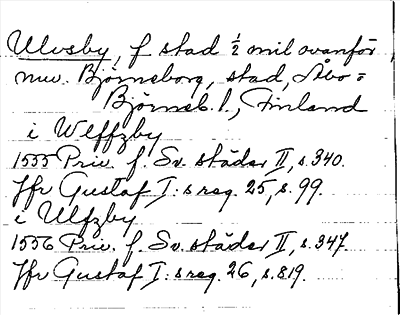 Ulvsby, f stad ½ mil ovanför
nuv. Björneborg, stad, Åbo=
Björneb. l., Finland
i Wlffzby
1555 Priv. f. Sv. städer II, s. 340.
Jfr Gustaf I:s reg. 25, s. 99.
i Ulfzby
1556 Priv. f. Sv. städer II, s. 347.
Jfr Gustaf I:s reg. 26, s. 819.